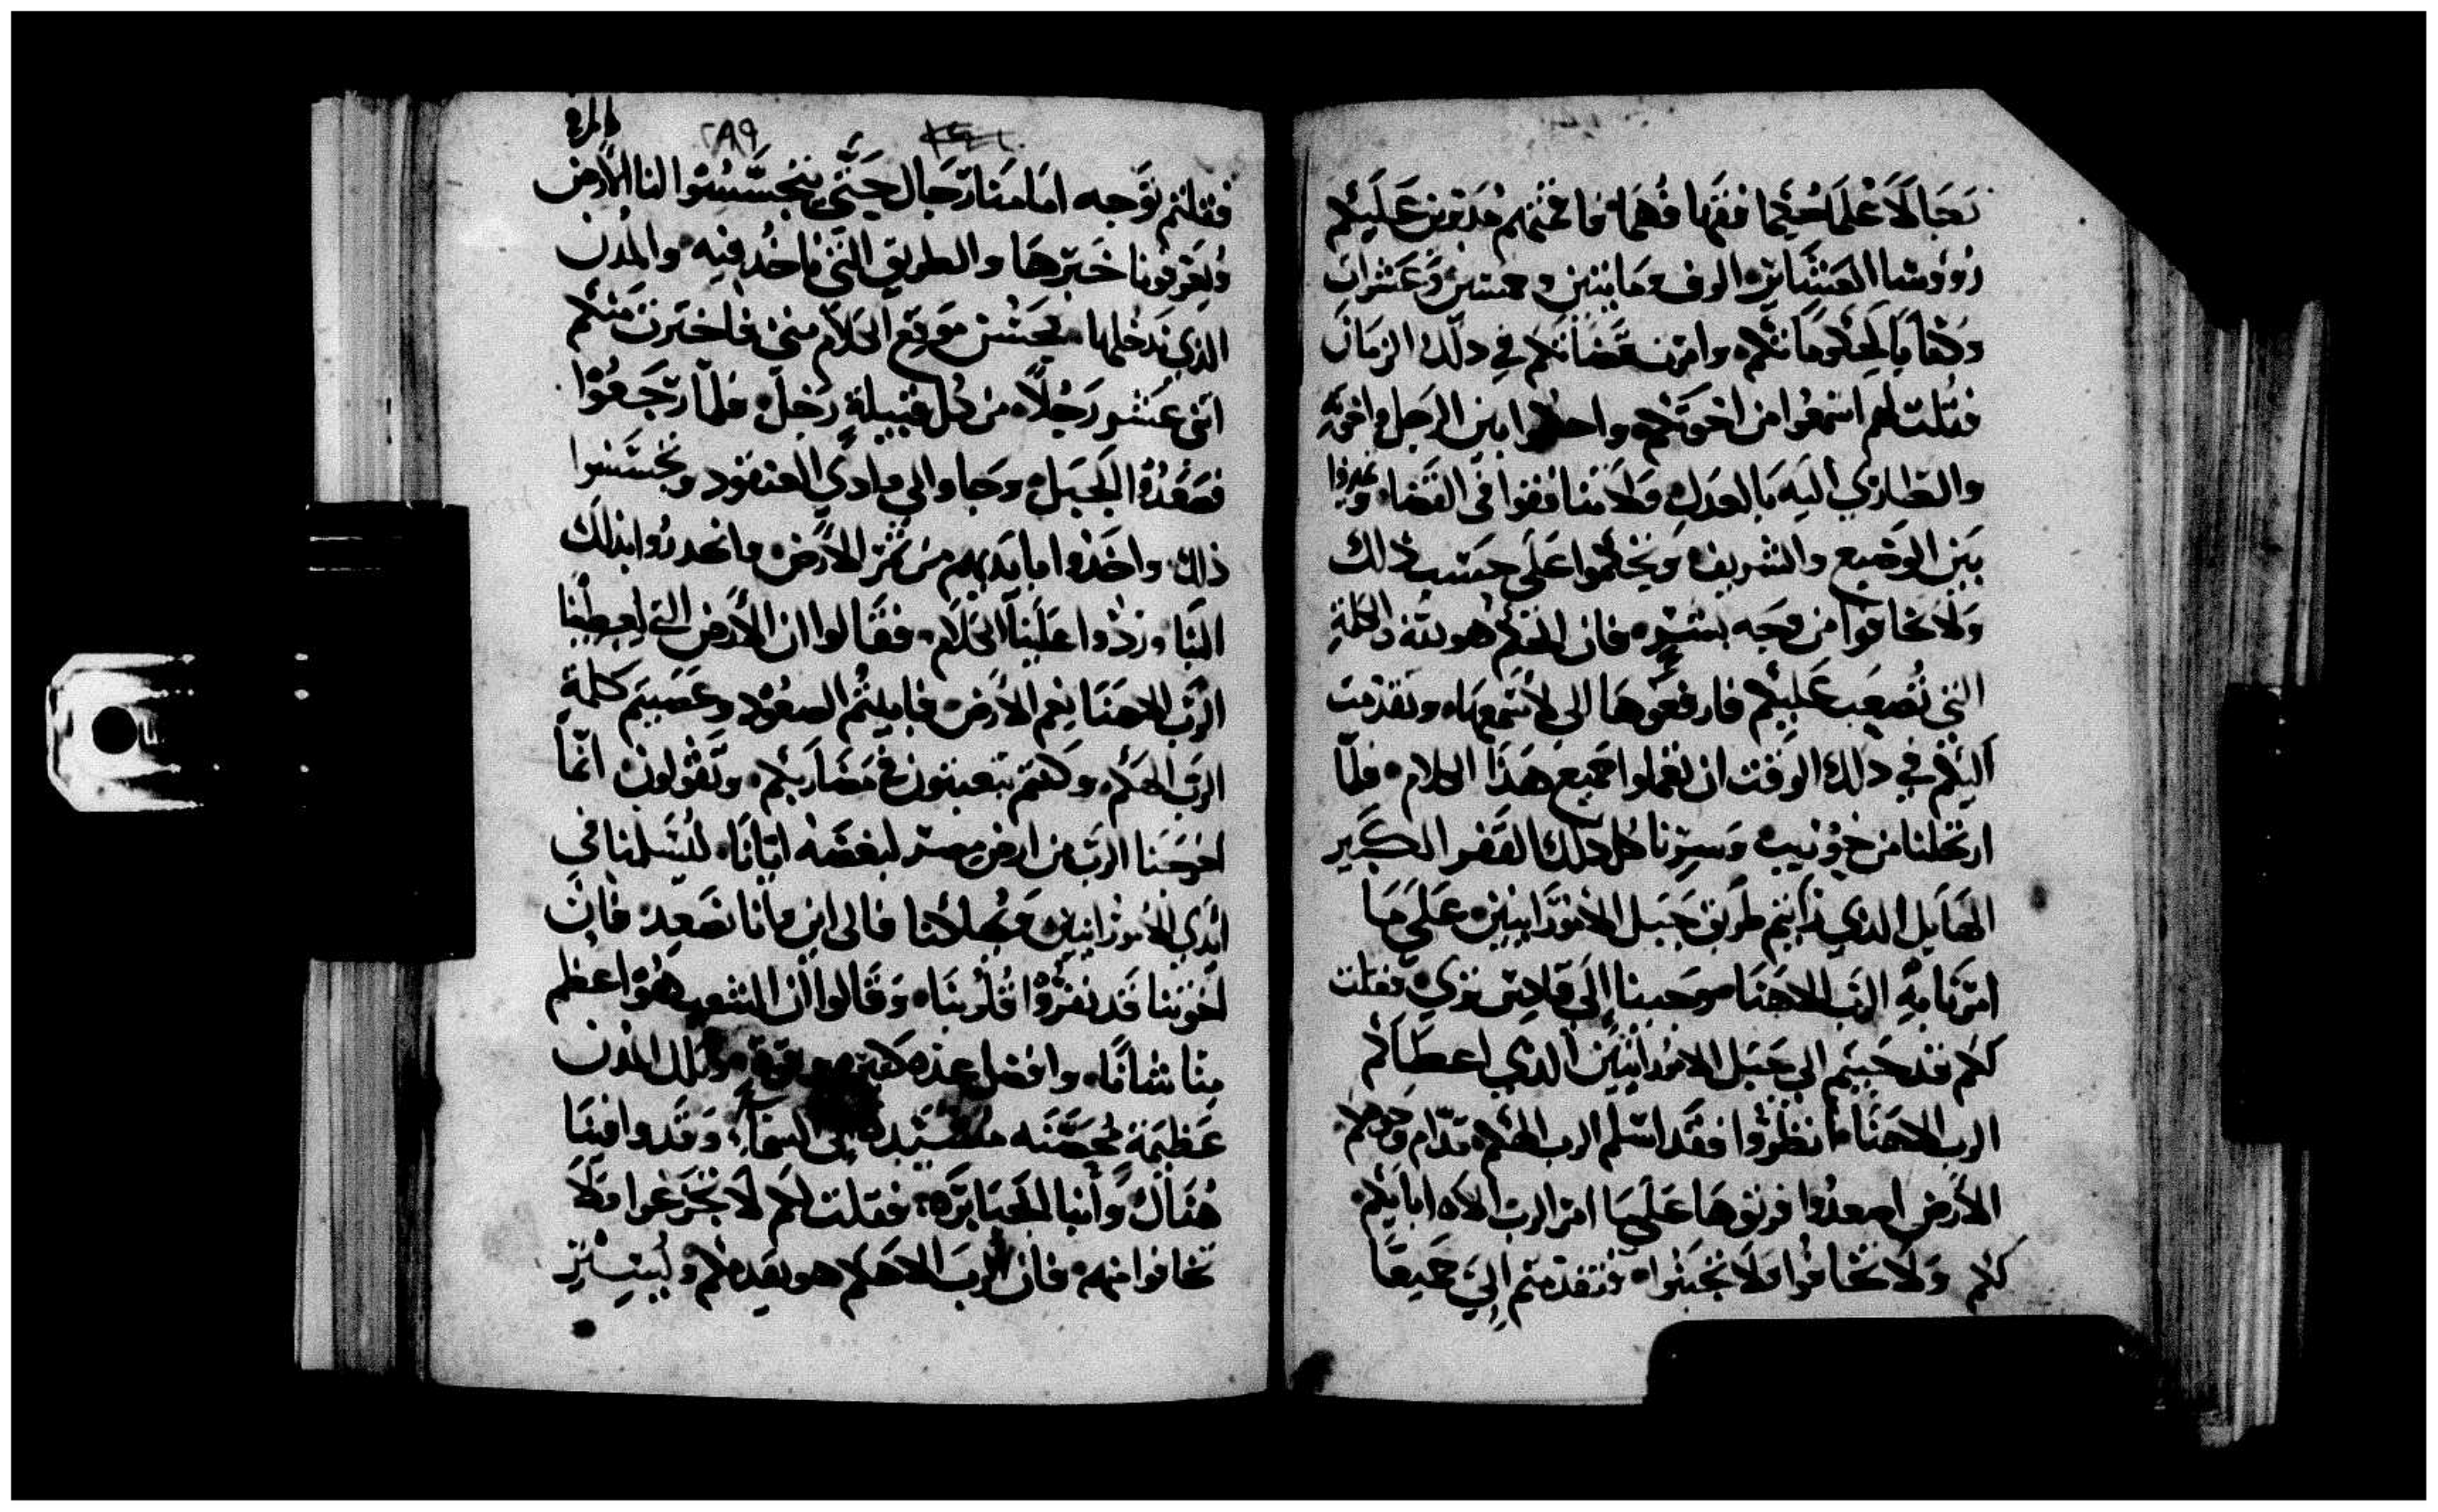 رجالا علما حكما فقها فهما فاقمتهم مدبرين عليكم
رووسا العشاير الوف ومايتين وخمسين وعشرات
وكتابا لحكوماتكم وامرت قضاتكم في دلك الزمان
فقلت لهم اسمعوا من اخوتكم واحكموا بين الرجل واخوه
والطاري اليه بالعدل ولا تنافقوا في القضا
بين الوضيع والشريف وتحكموا على حسب ذلك
ولا تخافوا من وجه بشر فان الحكم هو لله والكلمة
التي تصعب عليكم فارفعوها الى لاسمعها وتقدمت
اليكم في دلك الوقت ان تعملوا جميع هذا الكلام فلما
ارتحلنا من خوريب وسرنا كل دلك القفر الكبير
الهايل الذي رايتم طريق جبل الاموراىيين على ما
امرنا به الرب الاهنا وجينا إلى قادس برني فقلت
لكم قد جيتم الي جبل الاموراىيين الدي اعطاكم
الرب الاهنا انظروا فقد اسلم الرب الهكم قدام وجوهكم
الارض اصعدوا فرثوها على ما امر الرب الاه ابايكم
لكم ولا تخافوا ولا تجبنوا فتقدمتم الي جميعا
٢٨٩
فقلتم نوجه امامنا رجال حتي يتجسسوا لنا الارض
ويعرفونا خبرها والطريق التي ناخد فيه والمدن
الذي ندخلها فحسن موقع الكلام مني فاخترت منكم
اثنى عشر رجلا من كل قبيلة رجل فلما رجعوا
فصعدوا الجبل وجاوا الي وادي العنقود وتجسسوا
ذلك واخذوا بايديهم من ثمر الارض وانحدروا بذلك
الينا وردوا علينا الكلام فقالوا ان الارض التي يعطينا
الرب الاهنا نعم الارض فابيتم الصعود وعصيتم كلمة
الرب الهكم وكنتم تتعبثون في مضاربكم وتقولون انما
اخرجنا الرب من ارض مصر لبغضه ايانا ليسلمنا في
ايدي الاموراىيين ويهلكنا فالى اين مانا نصعد فان
اخوتنا قد نفروا قلوبنا وقالوا ان الشعب هو اعظم
منا شانا وافضل عده وتلك المدن
عظيمة محصنه مشيده الى السما وقد راينا
هناك وابنا الجبابره فقلت لكم لا تجزعوا ولا
تخافوا منهم فان الرب الاهكم هو يقدمكم ويسير